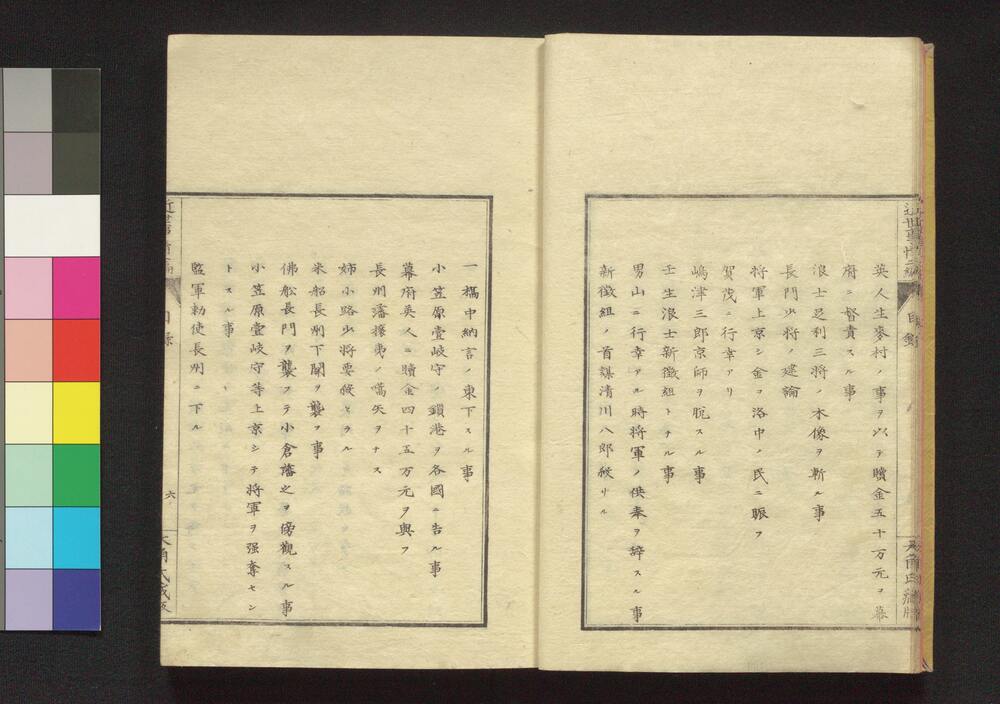 英人生麥村ノ事ヲ以テ贖金五十万元ヲ幕
府ニ督責スル事
浪士足利三将ノ木像ヲ斬ル事
長門少将ノ建論
将軍上京シ金ヲ洛中ノ民ニ賑フ
賀茂ニ行幸アリ
嶋津三郎京師ヲ脱スル事
壬生浪士新徴組トナル事
男山ニ行幸アル時将軍ノ供奉ヲ辞スル事
新徴組ノ首謀清川八郎殺サル
一橋中納言ノ東下スル事
小笠原壹岐守ノ鎖港ヲ各國ニ告ル事
幕府英人ニ贖金四十五万元ヲ與フ
長州藩攘夷ノ嚆矢ヲナス
姉小路少将要殺セラル
米船長州下関ヲ襲フ事
佛舩長門ヲ襲フテ小倉藩之ヲ傍觀スル事
小笠原壹岐守等上京シテ将軍ヲ强奪セン
トスル事
監軍勅使長州ニ下ル
目錄
六